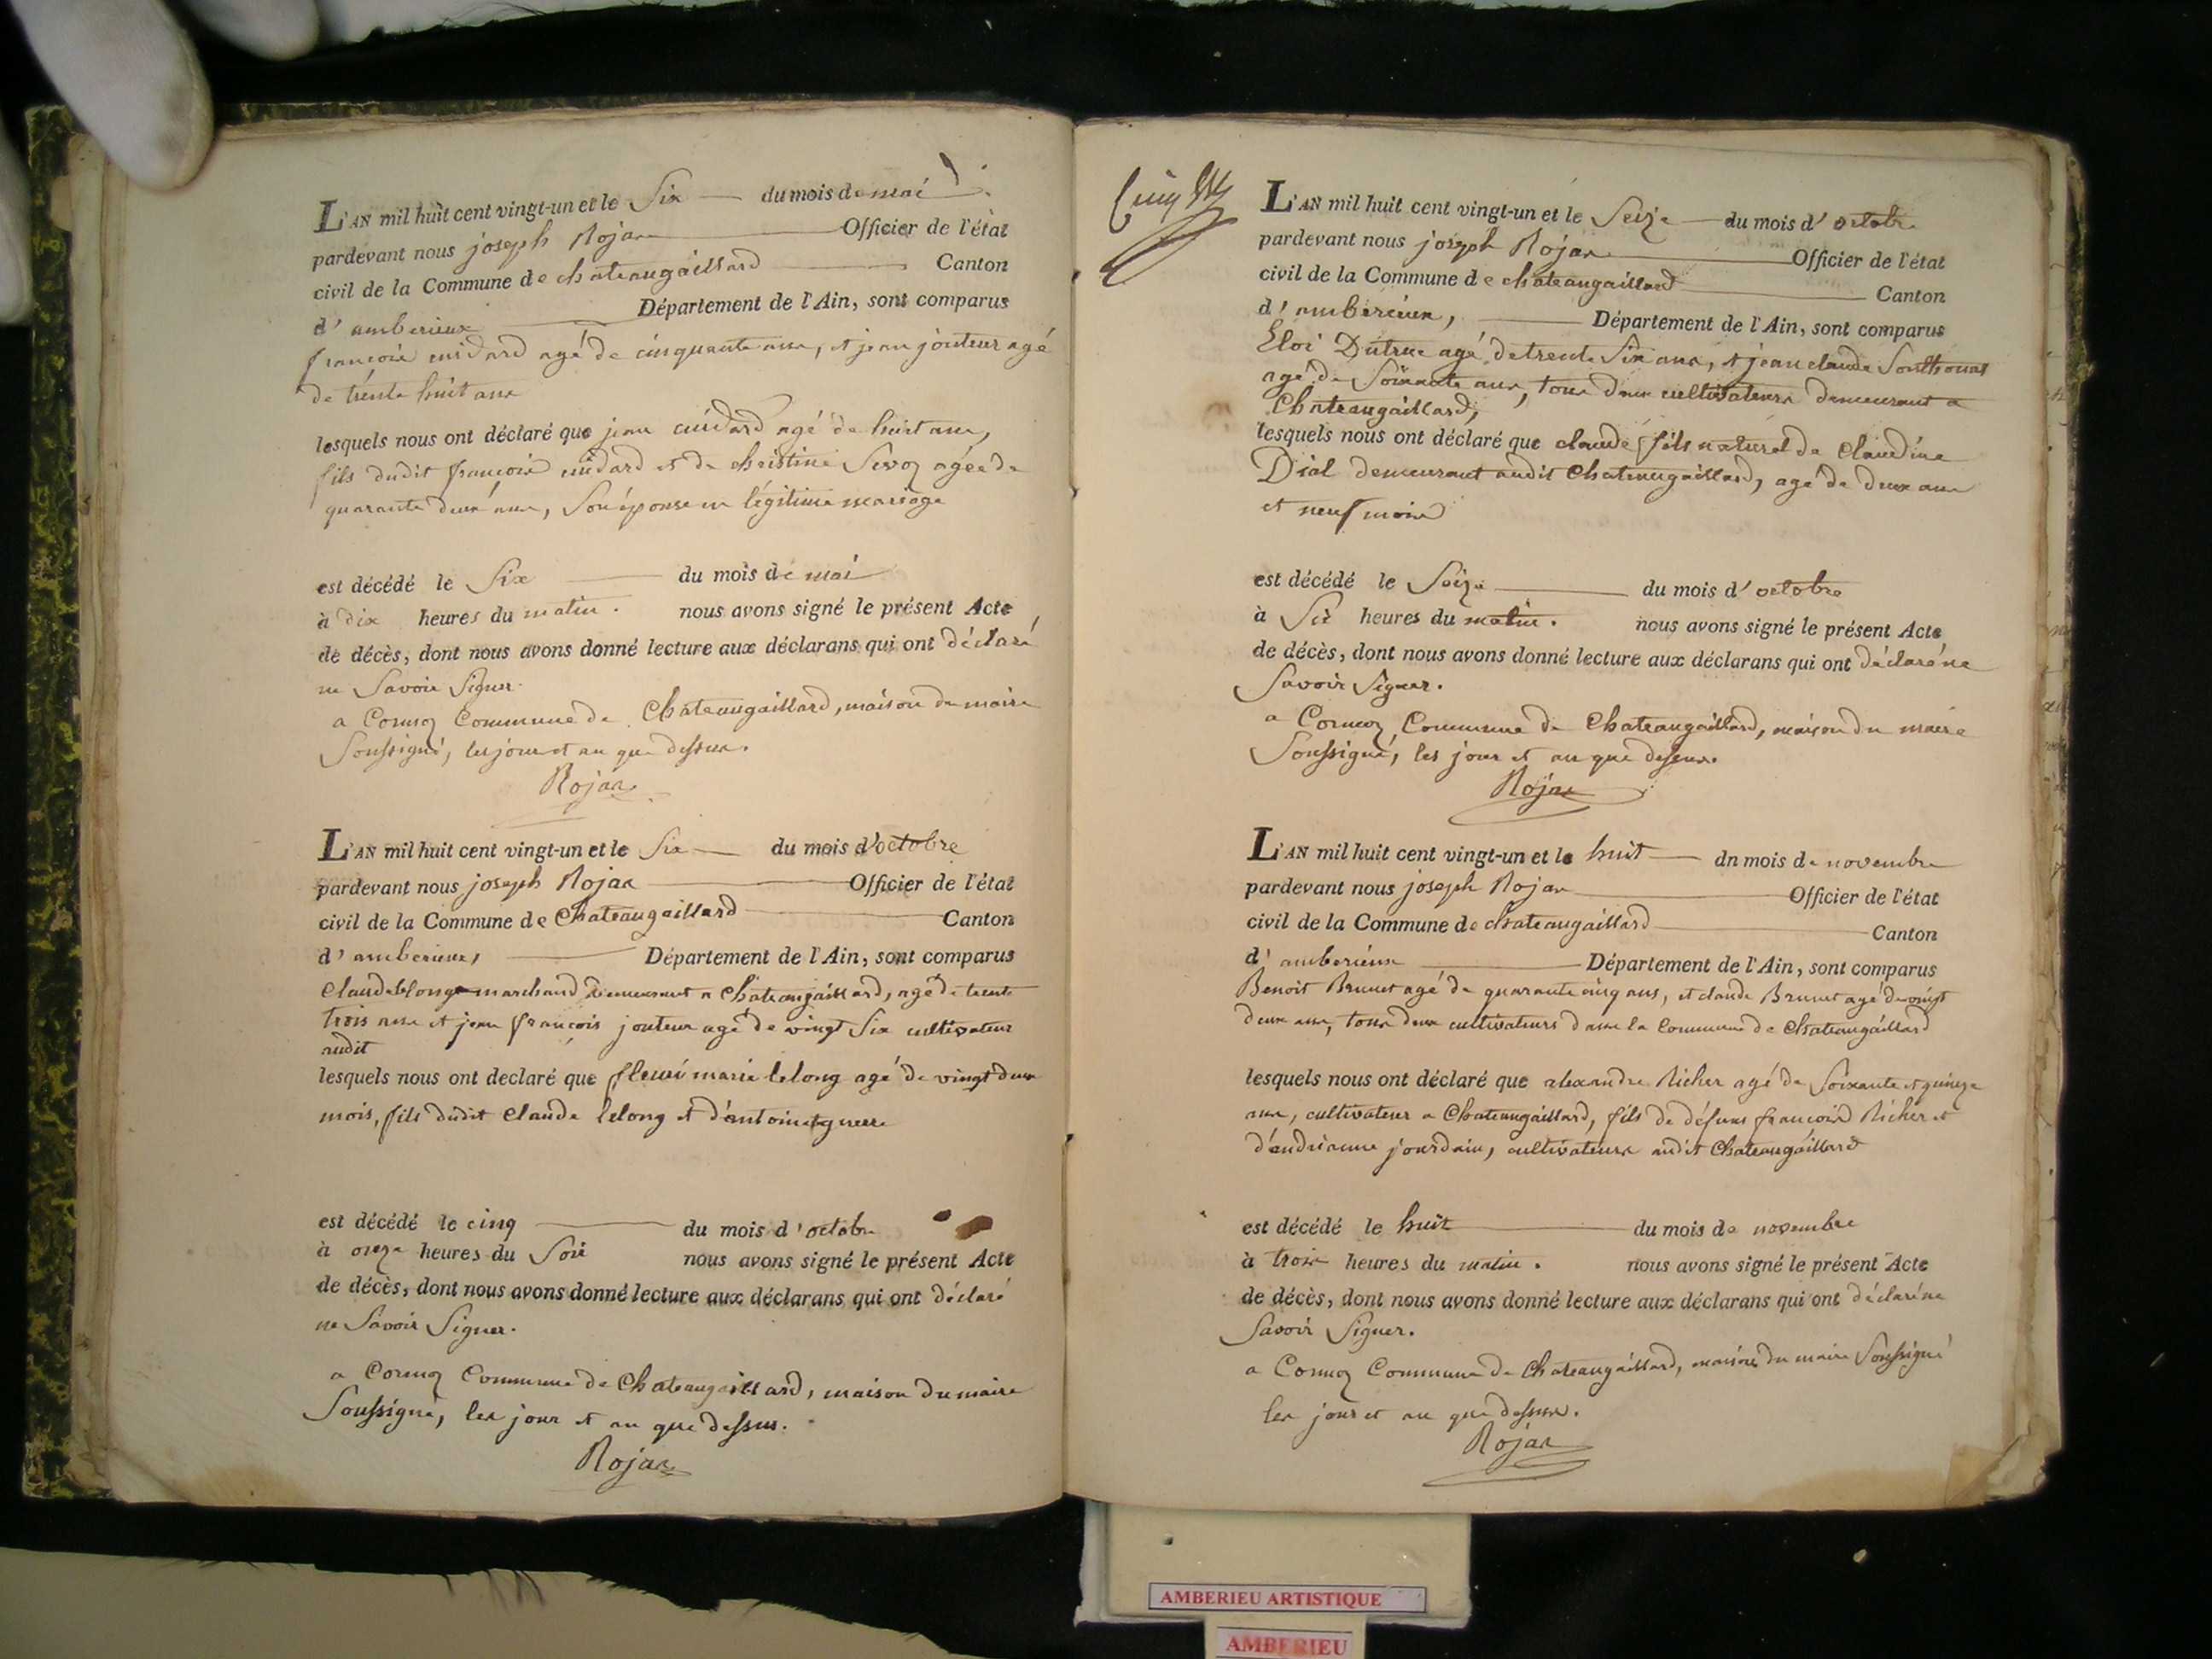 L'AN mil huit cent vingt-un et le Six du mois de mai
pardevant nous joseph Rojas Officier de l'état
civil de la Commune de chateaugaillard Canton
d'amberieux Département de l'Ain, sont comparus
françois cuidard agé de cinquante ans, et jean jouteur agé
de trente huit ans
lesquels nous ont déclaré que jean cuidard agé de huit ans,
fils dudit françois cuidard et de christine Sevoz agée de
quarante deux ans, Son épouse en légitime mariage
est décédé le Six du mois de mai
à dix heures du matin. nous avons signé le présent Acte
de décès, dont nous avons donné lecture aux déclarans qui ont déclaré
ne Savoir Signer.
a Cormoz Commune de Chateaugaillard, maison du maire
Soussigné, les jour et an que dessus.
Rojas
L'AN mil huit cent vingt-un et le Six du mois d'octobre
pardevant nous joseph Rojas Officier de l'état
civil de la Commune de Chateaugaillard Canton
d'amberieux, Département de l'Ain, sont comparus
Claude lelong marchand demeurant a Chateaugaillard, agé de trente
trois ans et jean françois jouteur agé de vingt Six cultivateur
audit
lesquels nous ont declaré que fleuri marie lelong agé de vingt deux
mois, fils dudit Claude lelong et
est décédé le cinq du mois d'octobre
à onze heures du Soir nous avons signé le présent Acte
de décès, dont nous avons donné lecture aux déclarans qui ont déclaré
ne Savoir Signer.
a Cormoz Commune de Chateaugaillard, maison du maire
Soussigné, les jour et an que dessus.
Rojas
L'AN mil huit cent vingt-un et le Seize du mois d'octobre
pardevant nous joseph Rojas Officier de l'état
civil de la Commune de chateaugaillard Canton
d'amberieux, Département de l'Ain, sont comparus
Eloi Dutruc agé de trente Six ans, et jean claude
agé de Soixante ans, tous deux cultivateurs demeurant a
Chateaugaillard,
lesquels nous ont déclaré que claude fils naturel de Claudine
Dial demeurant audit Chateaugaillard, agé de deux ans
et neuf mois
est décédé le Seize du mois d'octobre
à Six heures du matin. nous avons signé le présent Acte
de décès, dont nous avons donné lecture aux déclarans qui ont déclaré ne
Savoir Signer.
a Cormoz, Commune de Chateaugaillard, maison du maire
Soussigné, les jour et an que dessus.
Rojas
L'AN mil huit cent vingt-un et le huit dn mois de novembre
pardevant nous joseph Rojas Officier de l'état
civil de la Commune de chateaugaillard Canton
d'amberieux Département de l'Ain, sont comparus
Benoit Brunet agé de quarante cinq ans, et claude Brunet agé de vingt
deux ans, tous deux cultivateurs dans la Commune de Chateaugaillard
lesquels nous ont déclaré que alexandre Richer agé de Soixante et quinze
ans, cultivateur a Chateaugaillard, fils de défunts françois Richer et
d'andrianne jourdain, cultivateurs audit Chateaugaillard
est décédé le huit du mois de novembre
à trois heures du matin. nous avons signé le présent Acte
de décès, dont nous avons donné lecture aux déclarans qui ont déclaré ne
Savoir Signer.
a Cormoz Commune de Chateaugaillard, maison du maire Soussigné
les jour et an que dessus.
Rojas
AMBERIEU ARTISTIQUE
AMBERIEU